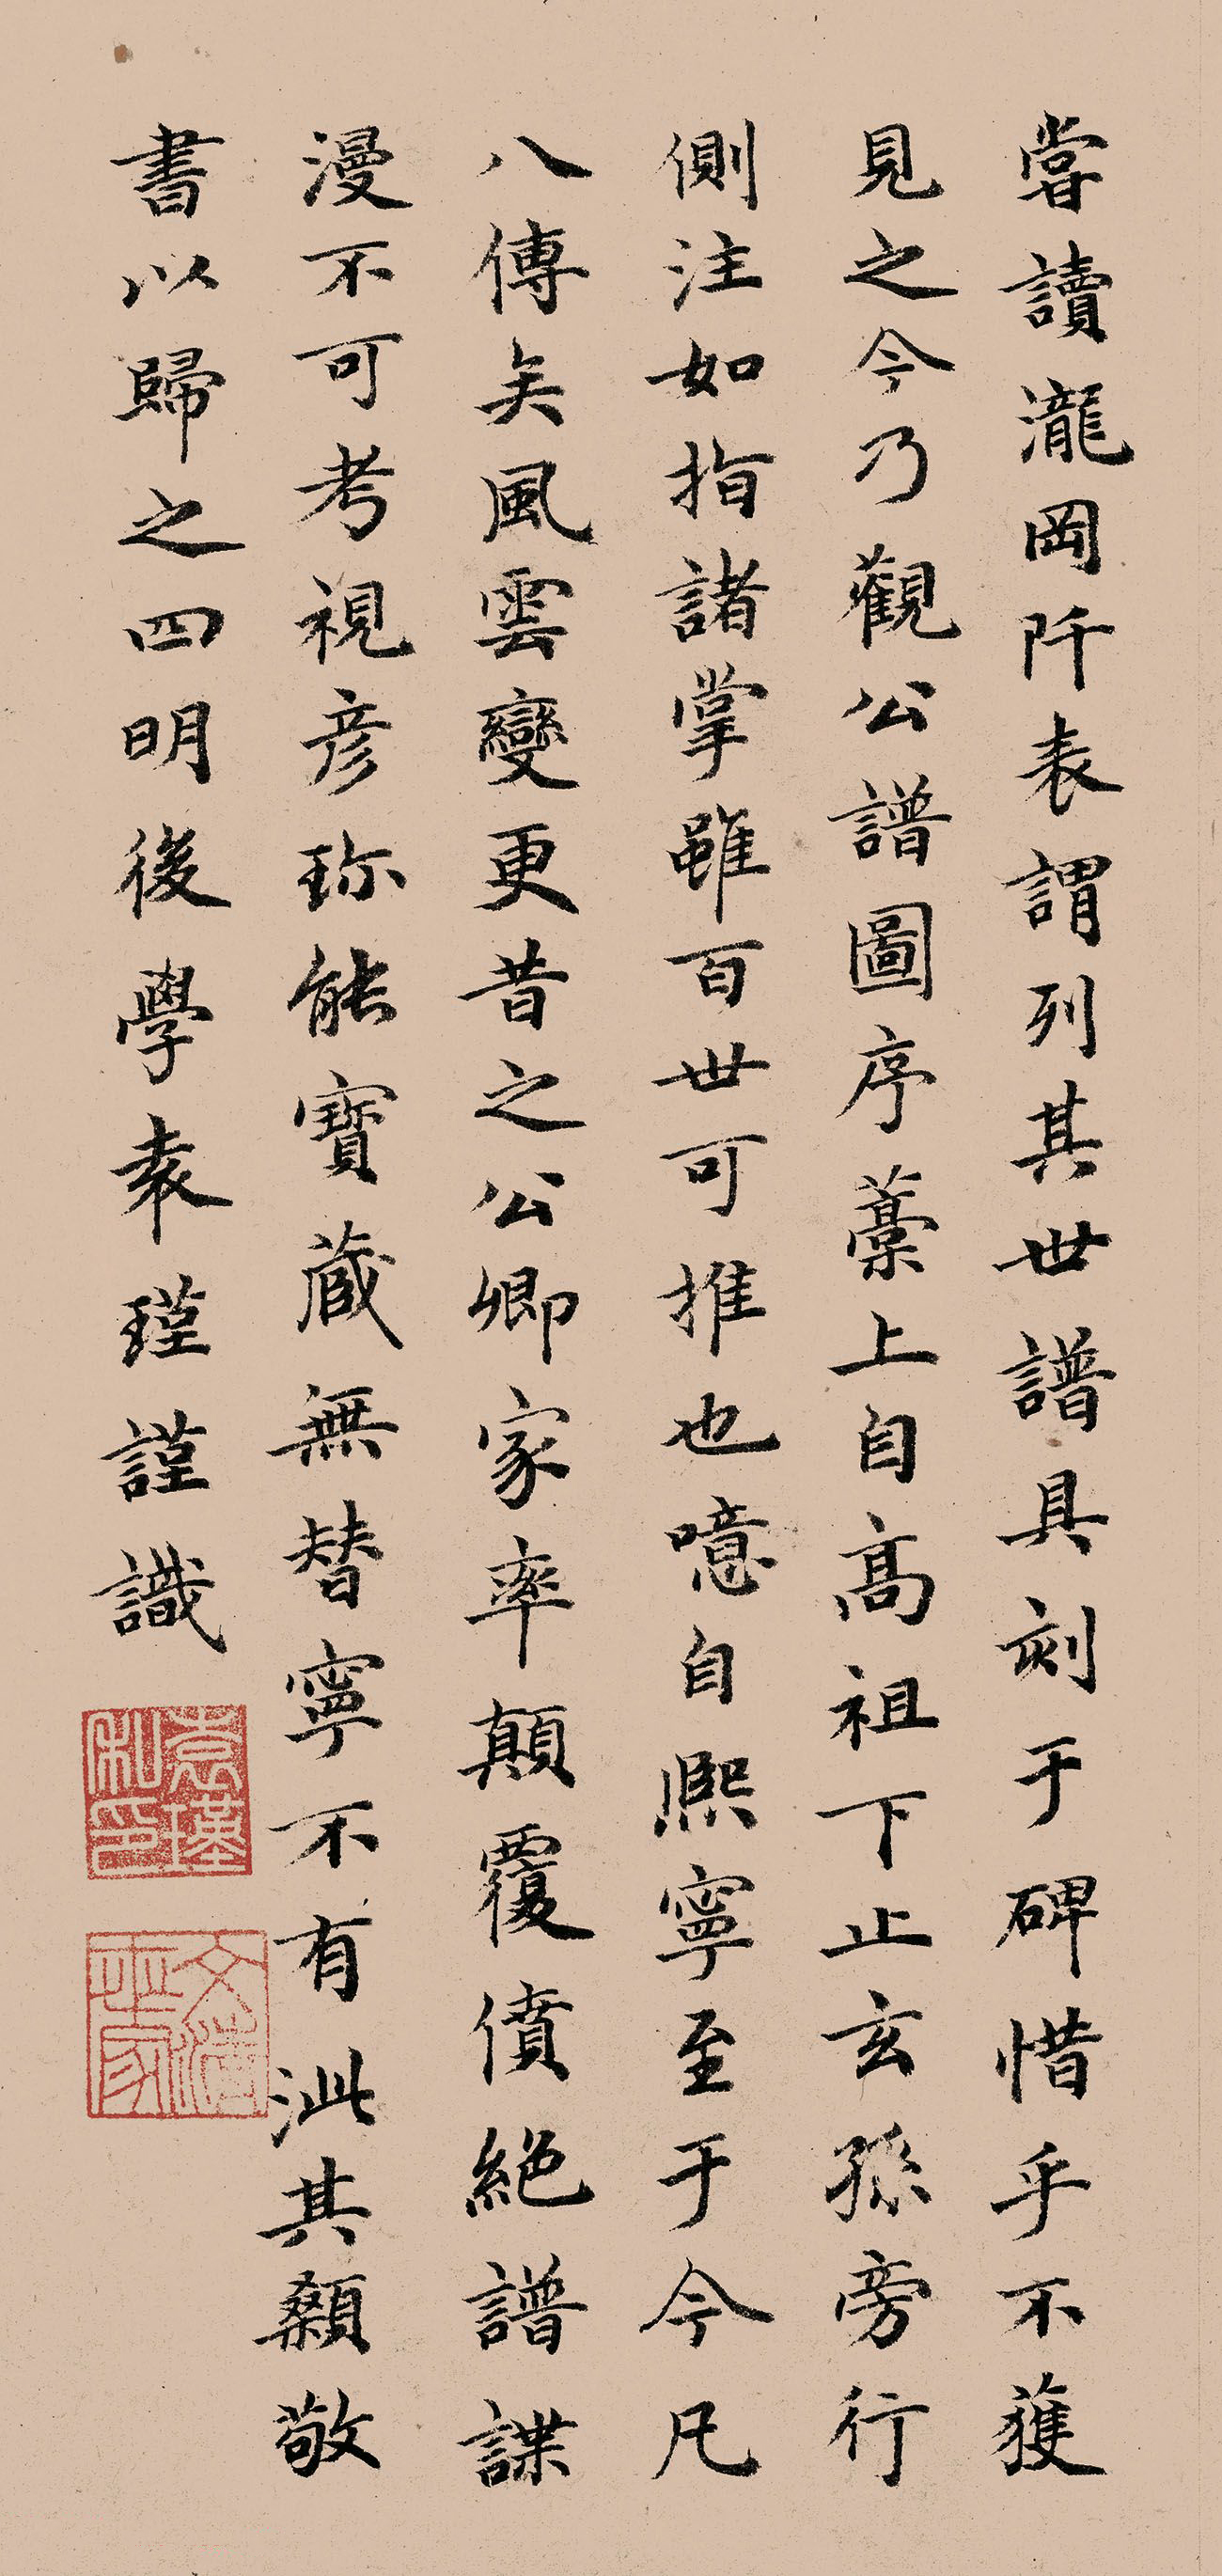 嘗讀瀧岡阡表謂列其世譜具刻于碑惜乎不獲
見之今乃觀公譜圖序藁上自高祖下止玄孫旁行
側注如指諸掌雖百世可推也噫自熙寧至于今凡
八傳矣風雲變更昔之公卿家率顛覆僨絕譜諜
漫不可考視彦珎能寶蔵無替寧不有泚其顙敬
書以歸之四明後學袁瑾謹識
袁瑾私印